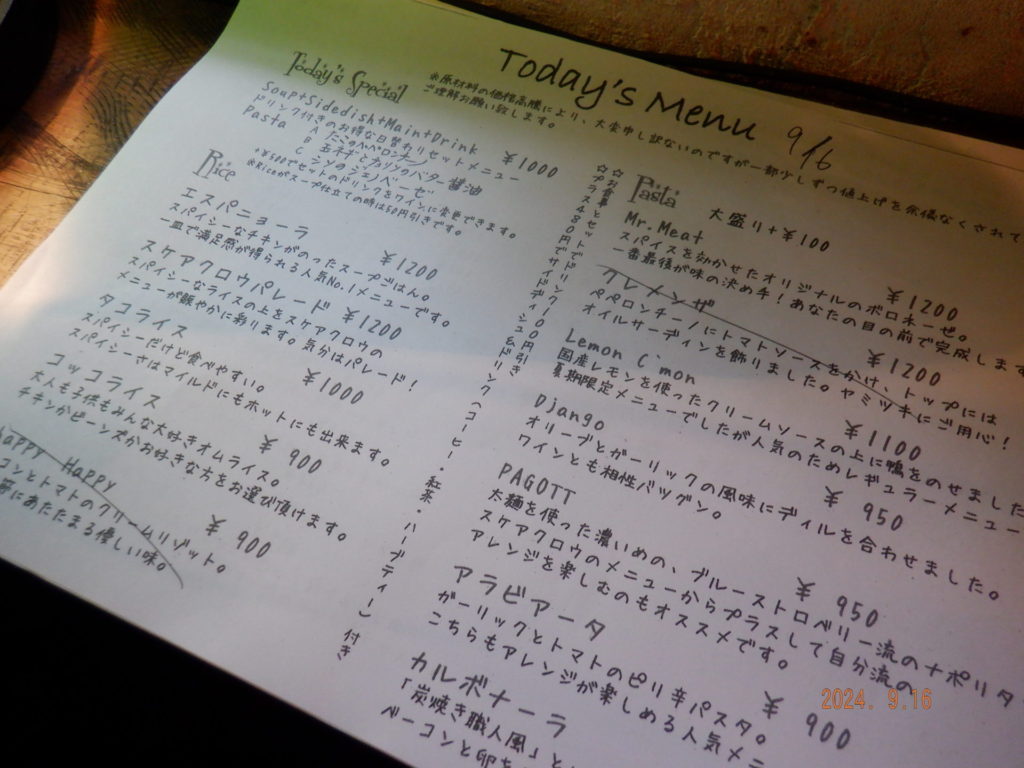 Today's Menu 9/6
※原材料の価格高騰により、大変申し訳ないのですが一部少しずつ値上げを余儀なくされて
ご理解お願い致します。
Today's Special
Soup+Sidedish+Main+Drink ¥1000
ドリンク付きのお得な日替わりセットメニュー
Pasta A たこのペペロンチーノ
B 醤油
C シソのジェノベーゼ
+¥500でセットのドリンクをワインに変更できます。
※Riceがスープ仕立ての時は50円引きです。
Rice
エスパニョーラ ¥1200
スパイシーなチキンがのったスープごはん。
一皿で満足感が得られる人気No.1メニューです。
スケアクロウパレード ¥1200
スパイシーなライスの上をスケアクロウの
メニューが賑やかに彩ります。気分はパレード!
タコライス ¥1000
スパイシーだけど食べやすい。
スパイシーさはマイルドにもホットにも出来ます。
コッコライス ¥900
大人も子供もみんな大好きオムライス。
チキンかビーンズかお好きな方をお選び頂けます。
Happy Happy ¥900
コンとトマトのクリームリゾット。
にあたたまる優しい味。
☆お食事とセットでドリンク100円引き
(コーヒー・紅茶・ハーブティー)付き
Pasta 大盛り+¥100
Mr.Meat ¥1200
スパイスを効かせたオリジナルのボロネーゼ。
一番最後が味の決め手!あなたの目の前で完成します
クレメンザ ¥1200
ペペロンチーノにトマトソースをかけ、トップには
オイルサーディンを飾りました。ヤミツキにご用心!
Lemon C'mon ¥1100
国産レモンを使ったクリームソースの上に鴨をのせました
夏期限定メニューでしたが人気のためレギュラーメニュー
Django ¥950
オリーブとガーリックの風味にディルを合わせました。
ワインとも相性バツグン。
PAGOTT ¥950
太麺を使った濃いめの、ブルーストロベリー流のナポリタ
スケアクロウのメニューからプラスして自分流の
アレンジを楽しむのもオススメです。
アラビアータ ¥900
ガーリックとトマトのピリ辛パスタ。
こちらもアレンジが楽しめる人気メニ
カルボナーラ
「炭焼き職人風」と
ベーコンと卵
2024. 9.16